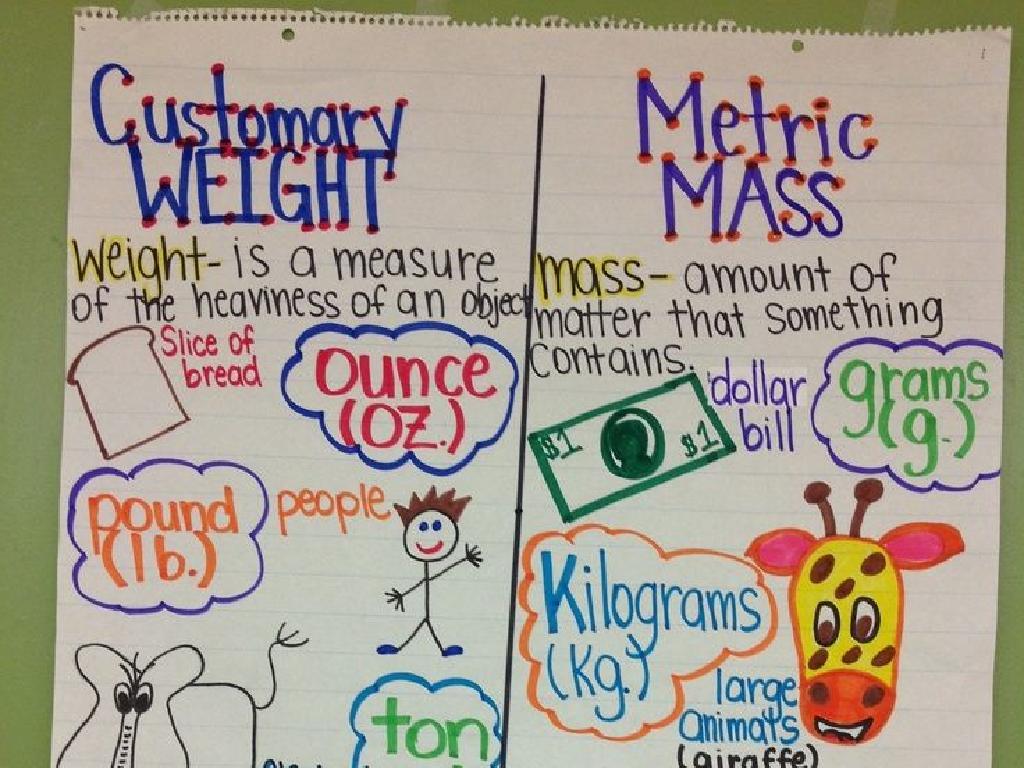 Customary
WEIGHT
Weight- is a measure
of the heaviness of an object
Slice of
bread
ounce
(oz.)
pound
(lb.)
people
ton
Metric
MASS
mass- amount of
matter that something
contains.
$1 $1
dollar
bill
grams
(g.)
Kilograms
(kg.)
large
animals
(giraffe)